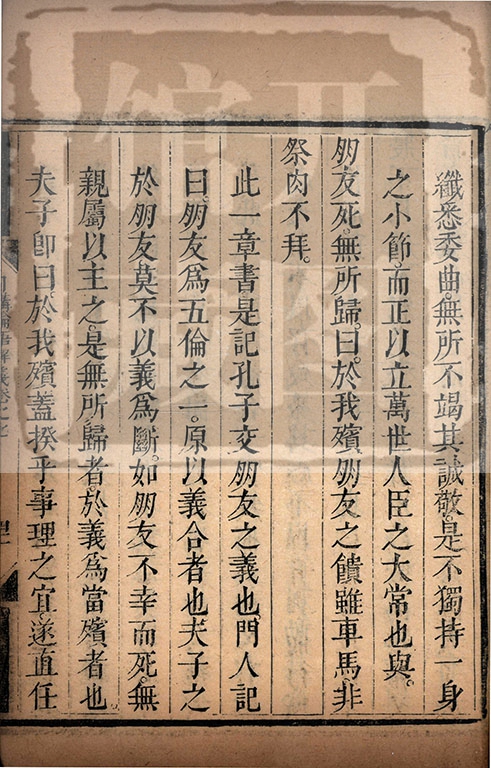 纖悉委曲。無所不竭其誠敬。是不獨持一身
之小節。而正以立萬世人臣之大常也與。
朋友死。無所歸。曰。於我殯。朋友之饋。雖車馬。非
祭肉不拜。
此一章書。是記孔子交朋友之義也。門人記
曰。朋友爲五倫之一。原以義合者也。夫子之
於朋友。莫不以義爲斷。如朋友不幸而死。無
親屬以主之。是無所歸者。於義爲當殯者也
夫子卽曰於我殯。蓋揆乎事理之宜。遂直任